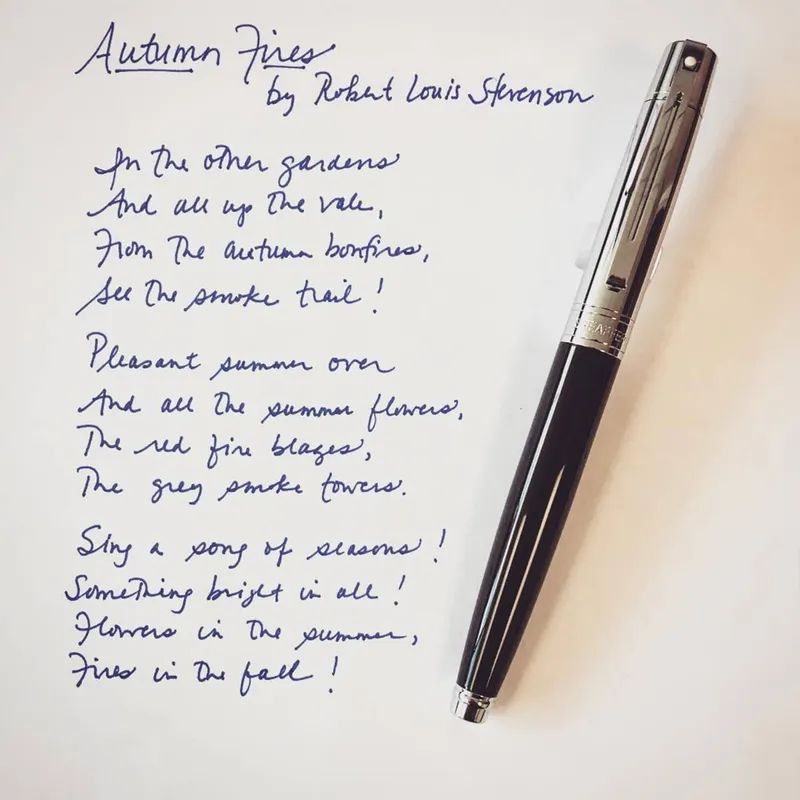 Autumn Fires
by Robert Louis Stevenson
In the other gardens
And all up the vale,
From the autumn bonfires,
See the smoke trail!
Pleasant summer over
And all the summer flowers,
The red fire blazes,
The grey smoke towers.
Sing a song of seasons!
Something bright in all!
Flowers in the summer,
Fires in the fall!
SHEAFFER